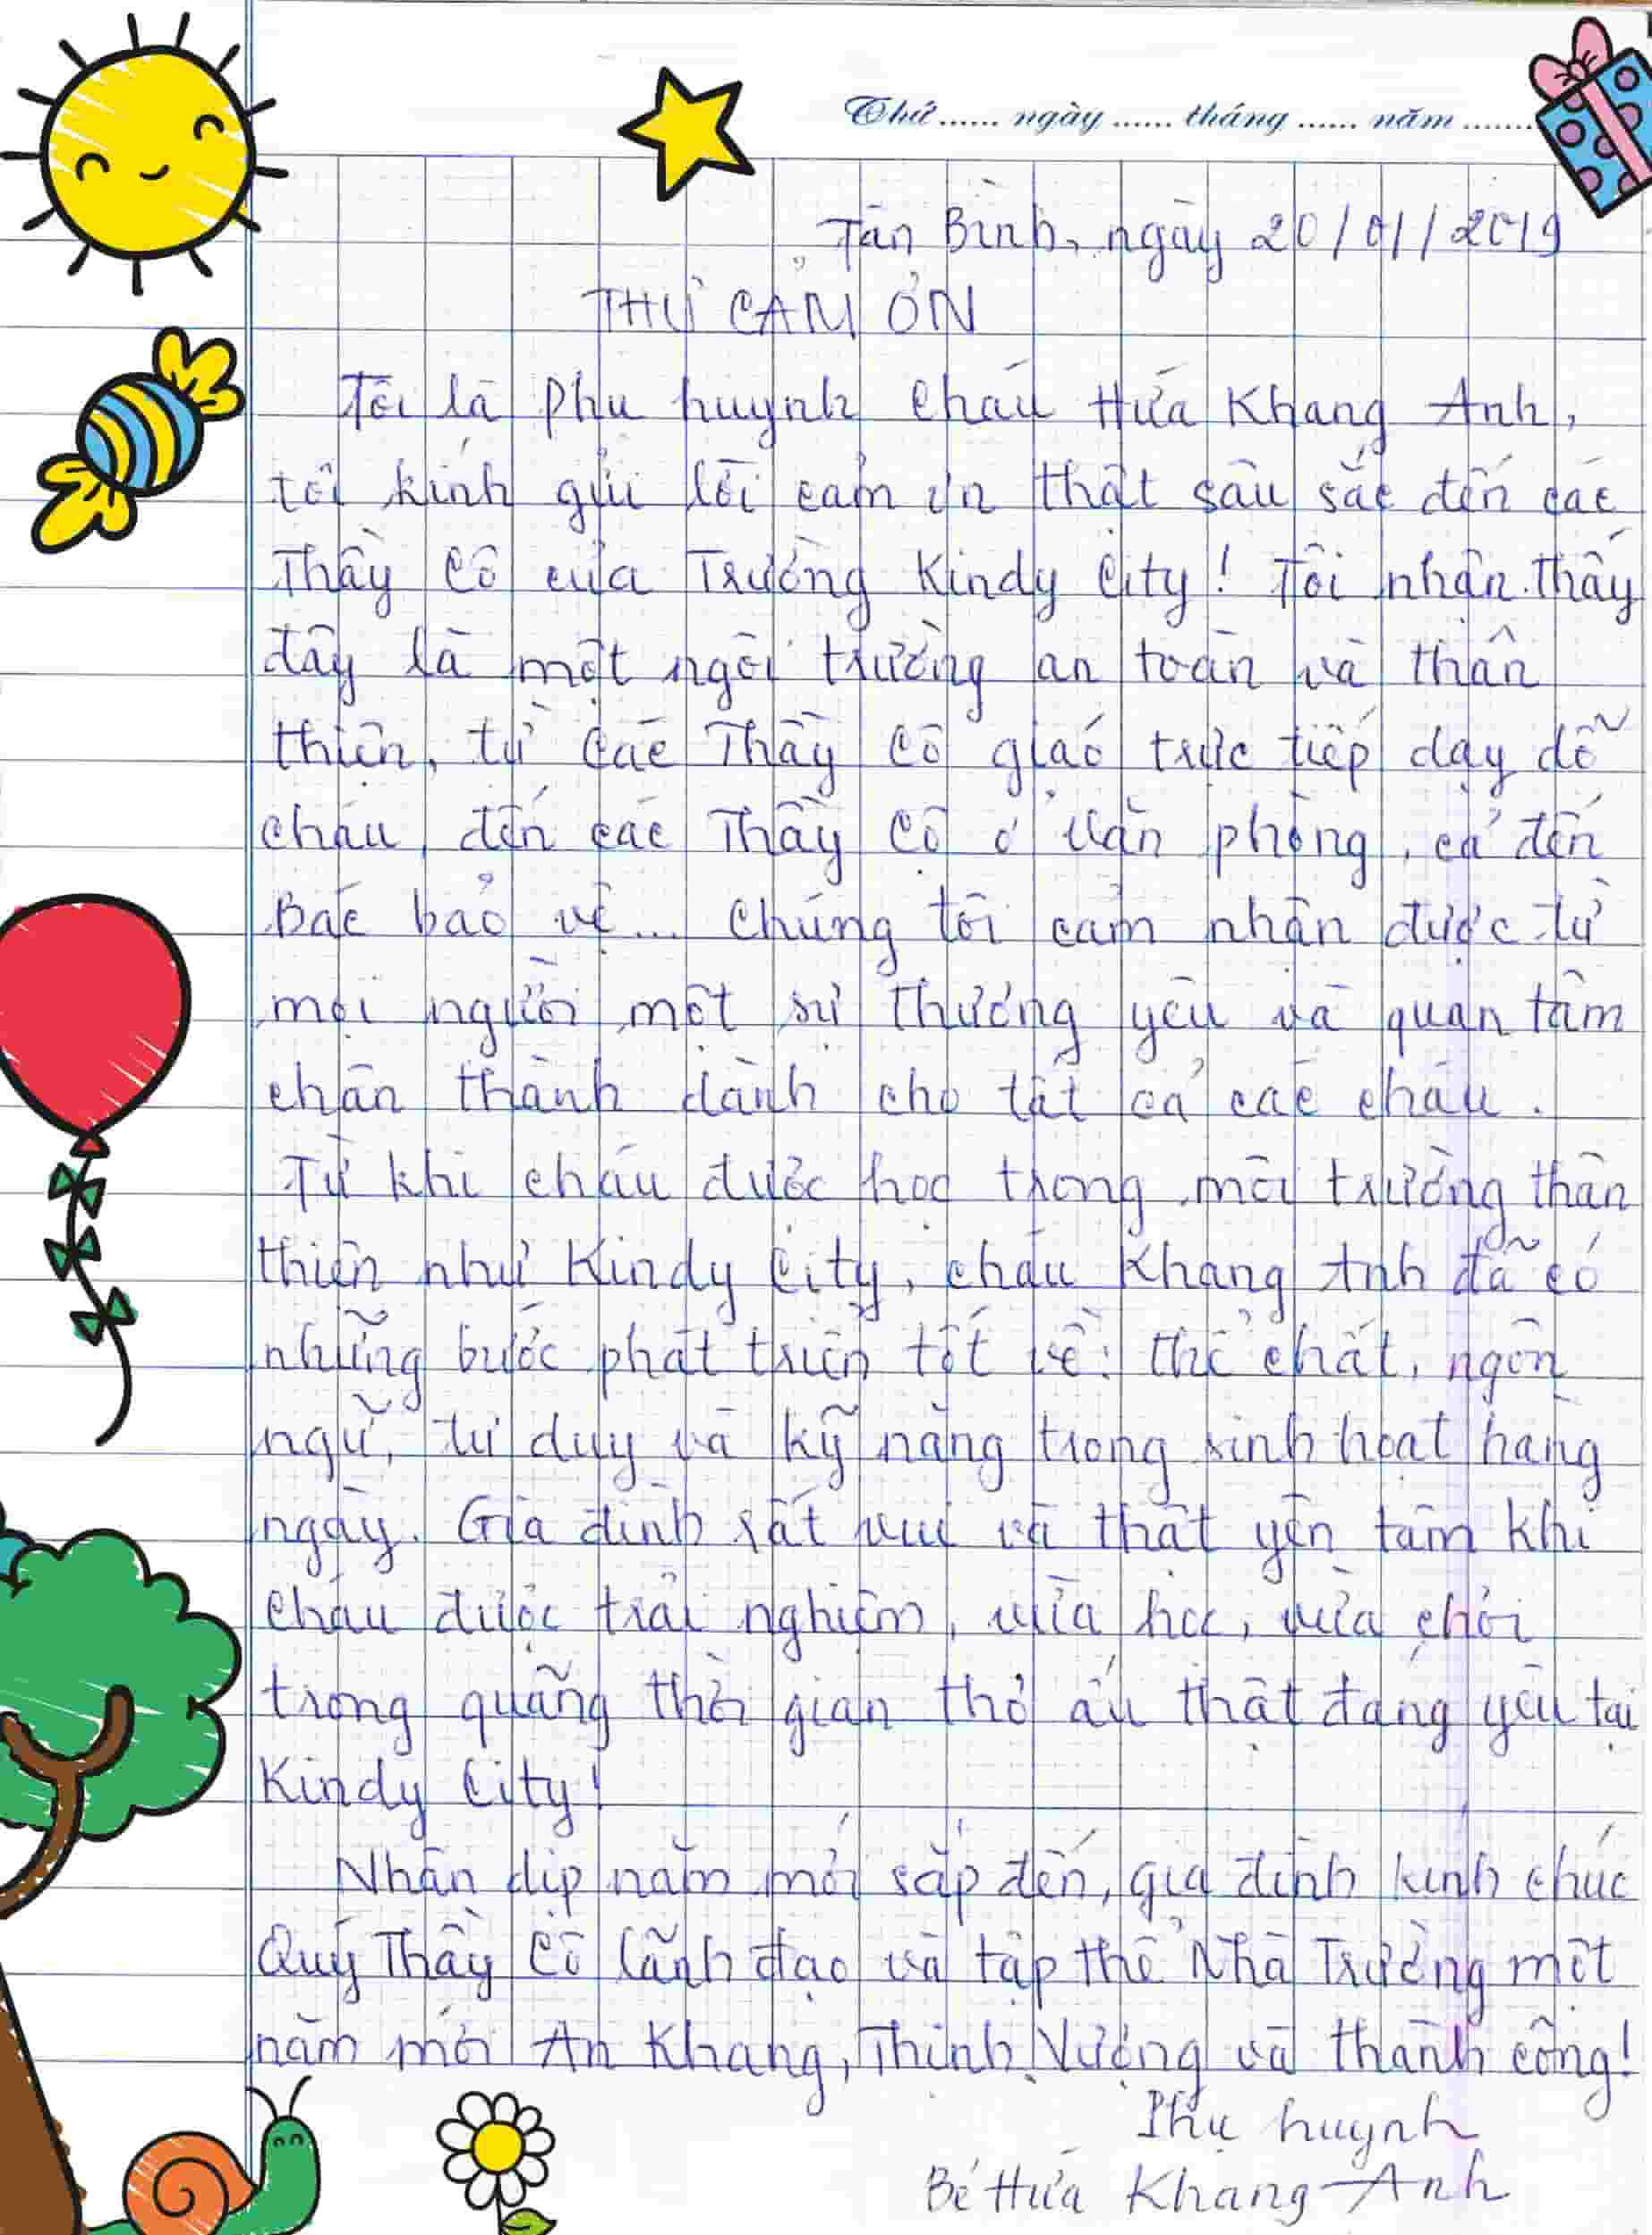 Thứ ...... ngày ...... tháng ...... năm .......
Tân Bình, ngày 20/01/2019
THƯ CẢM ƠN
Tôi là Phụ huynh cháu Hứa Khang Anh,
tôi kính gửi lời cảm ơn thật sâu sắc đến các
Thầy Cô của Trường Kindy City! Tôi nhận thấy
đây là một ngôi trường an toàn và thân
thiện, từ các Thầy Cô giáo trực tiếp dạy dỗ
cháu, đến các Thầy Cô ở Văn phòng, cả đến
Bác bảo vệ... Chúng tôi cảm nhận được từ
mọi người một sự thương yêu và quan tâm
chân thành dành cho tất cả các cháu.
Từ khi cháu được học trong môi trường thân
thiện như Kindy City, cháu Khang Anh đã có
những bước phát triển tốt về: thể chất, ngôn
ngữ, tư duy và kỹ năng trong sinh hoạt hàng
ngày. Gia đình rất vui và thật yên tâm khi
cháu được trải nghiệm, vừa học, vừa chơi
trong quãng thời gian thơ ấu thật đáng yêu tại
Kindy City!
Nhân dịp năm mới sắp đến, gia đình kính chúc
Quý Thầy Cô lãnh đạo và tập thể Nhà Trường một
năm mới An Khang, Thịnh Vượng và thành công!
Phụ huynh
Bé Hứa Khang Anh